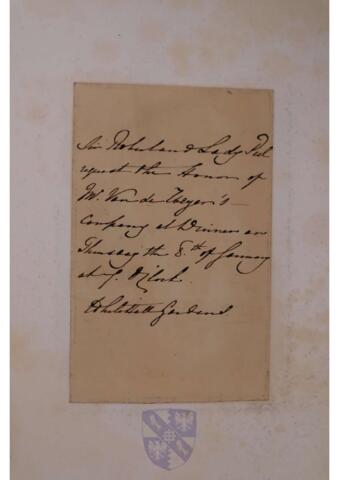 Sir Robert and Lady Peel
request the Honor of
M. Van de Weyer's
company at Dinner on
Thursday the 8th of January
at 7. O'Clock.
Whitehall Gardens